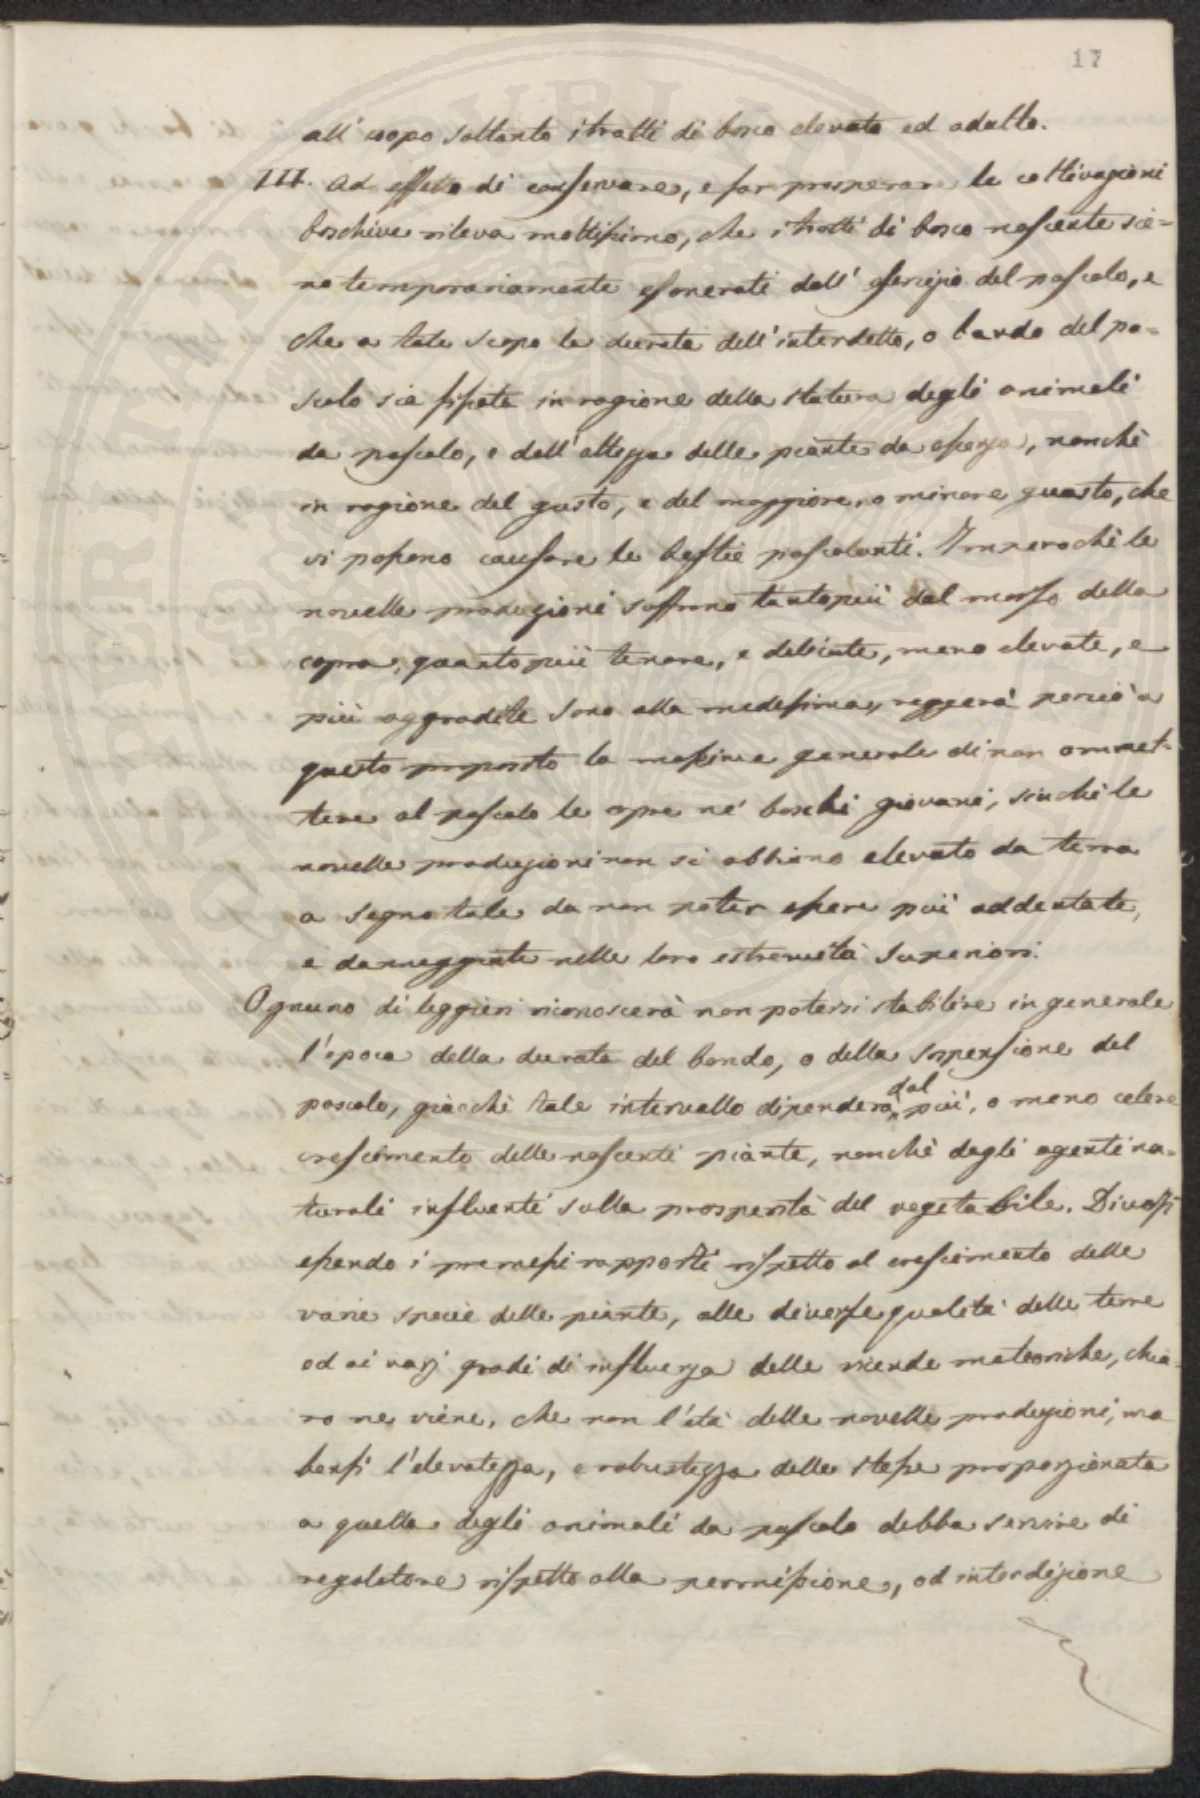 17
all' uopo soltanto i tratti di bosco elevato ed adulto.
III. Ad effetto di conservare, e far prosperare le coltivazioni
boschive rileva moltissimo, che i tratti di bosco nascente sie=
no temporariamente esonerati dall' esercizio del pascolo, e
che a tale scopo la durata dell' interdetto, o bando del pa=
scolo sia fissata in ragione della statura degli animali
da pascolo, e dell' altezza delle piante da essenza, nonchè
in ragione del gusto, e del maggiore, o minore guasto, che
vi possono causare le bestie pascolanti. Imperochè le
novelle produzioni soffrono tantopiù dal morso della
capra, quantopiù tenere, e delicate, meno elevate, e
più aggradite sono alla medesima, reggerà perciò a
questo proposito la massima generale di non ammet=
tere al pascolo le capre ne' boschi giovani, sinchè le
novelle produzioni non si abbiano elevato da terra
a segno tale da non poter essere più addentate,
e danneggiate nelle loro estremità superiori.
Ognuno di leggieri riconoscerà non potersi stabilire in generale
l'epoca della durata del bando, o della sospensione del
pascolo, giacchè tale intervallo dipenderà dal più, o meno celere
crescimento delle nascenti piante, nonchè degli agenti na=
turali influenti sulla prosperità del vegetabile. Diversi
essendo i premessi rapporti rispetto al crescimento delle
varie specie delle piante, alle diverse qualità delle terre
od ai varj gradi di influenza delle vicende meteoriche, chia=
ro ne viene, che non l'età delle novelle produzioni, ma
bensi l'elevatezza, e robustezza delle stesse proporzionata
a quella degli animali da pascolo debba servire di
regolatore rispetto alla permissione, od interdizione